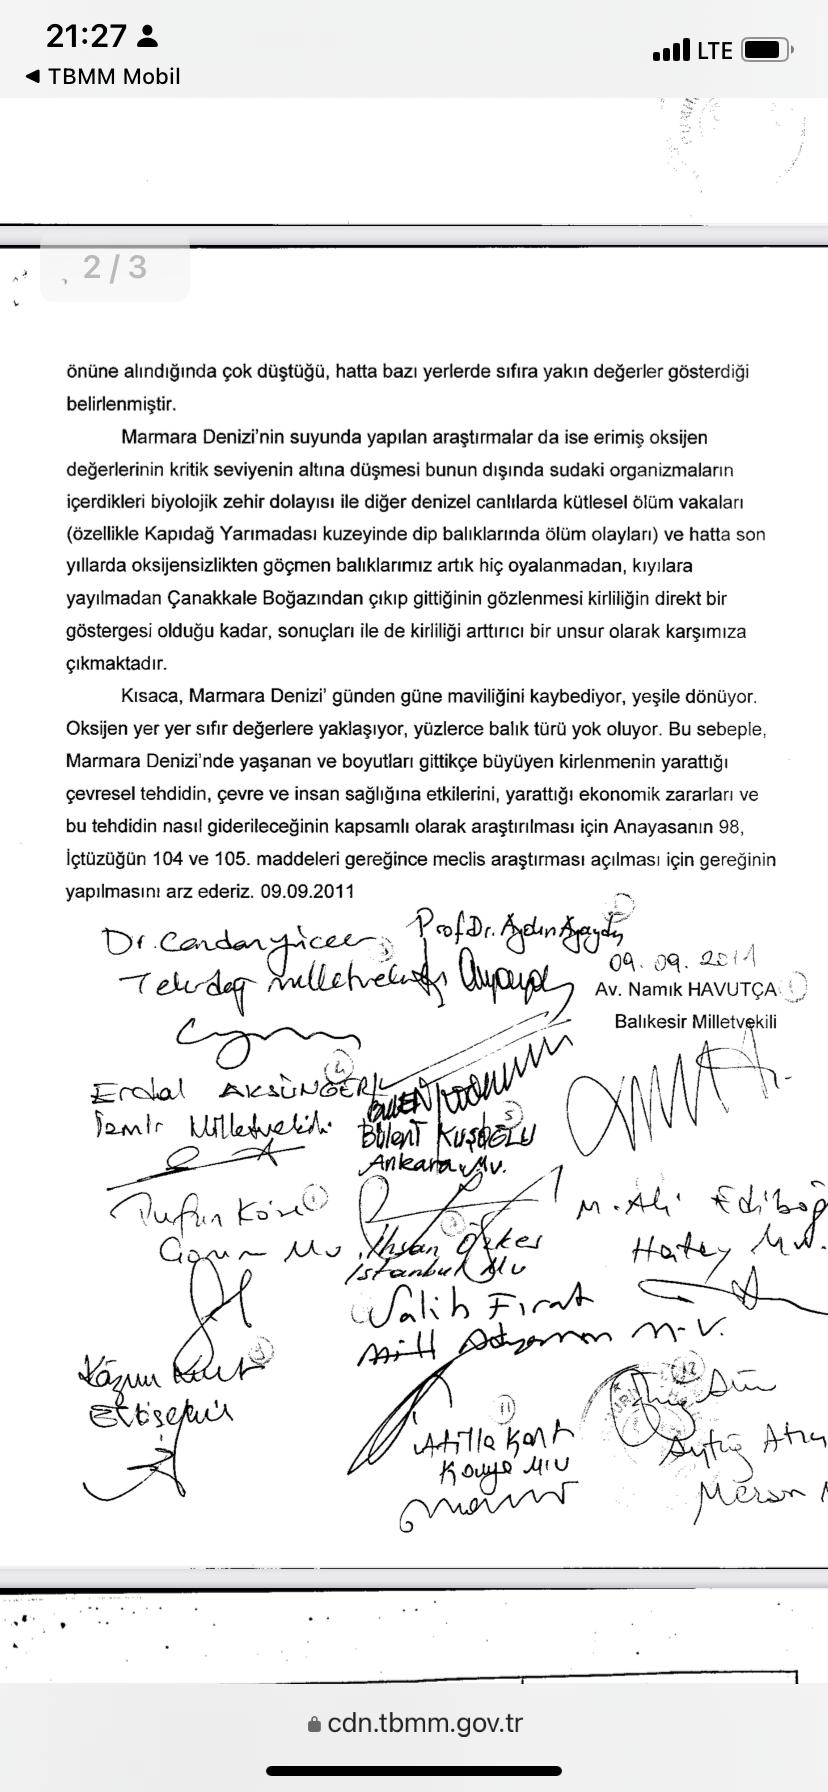 21:27
LTE
◄ TBMM Mobil
2/3
önüne alındığında çok düştüğü, hatta bazı yerlerde sıfıra yakın değerler gösterdiği
belirlenmiştir.
Marmara Denizi'nin suyunda yapılan araştırmalar da ise erimiş oksijen
değerlerinin kritik seviyenin altına düşmesi bunun dışında sudaki organizmaların
içerdikleri biyolojik zehir dolayısı ile diğer denizel canlılarda kütlesel ölüm vakaları
(özellikle Kapıdağ Yarımadası kuzeyinde dip balıklarında ölüm olayları) ve hatta son
yıllarda oksijensizlikten göçmen balıklarımız artık hiç oyalanmadan, kıyılara
yayılmadan Çanakkale Boğazından çıkıp gittiğinin gözlenmesi kirliliğin direkt bir
göstergesi olduğu kadar, sonuçları ile de kirliliği arttırıcı bir unsur olarak karşımıza
çıkmaktadır.
Kısaca, Marmara Denizi' günden güne maviliğini kaybediyor, yeşile dönüyor.
Oksijen yer yer sıfır değerlere yaklaşıyor, yüzlerce balık türü yok oluyor. Bu sebeple,
Marmara Denizi'nde yaşanan ve boyutları gittikçe büyüyen kirlenmenin yarattığı
çevresel tehdidin, çevre ve insan sağlığına etkilerini, yarattığı ekonomik zararları ve
bu tehdidin nasıl giderileceğinin kapsamlı olarak araştırılması için Anayasanın 98,
İçtüzüğün 104 ve 105. maddeleri gereğince meclis araştırması açılması için gereğinin
yapılmasını arz ederiz. 09.09.2011
Dr. Candan Yüceer 3 Prof Dr. Aydın Ayaydın
09.09.2011
Tekirdağ Milletvekili
Av. Namık HAVUTÇA 1
Balıkesir Milletvekili
Erdal AKSÜNGER 4
İzmir Milletvekili
5
Bülent KUŞOĞLU
Ankara Mv.
Tufan Köse
Çorum Mv.
İhsan Özkes
İstanbul Mv
M. Ali Ediboğ
Hatay Mv.
Salih Fırat
Adıyaman M.V.
Kazım Kurt 9
Eskişehir
11
Atilla Kart
Konya MV
12
Aytuğ Atıcı
Mersin
cdn.tbmm.gov.tr